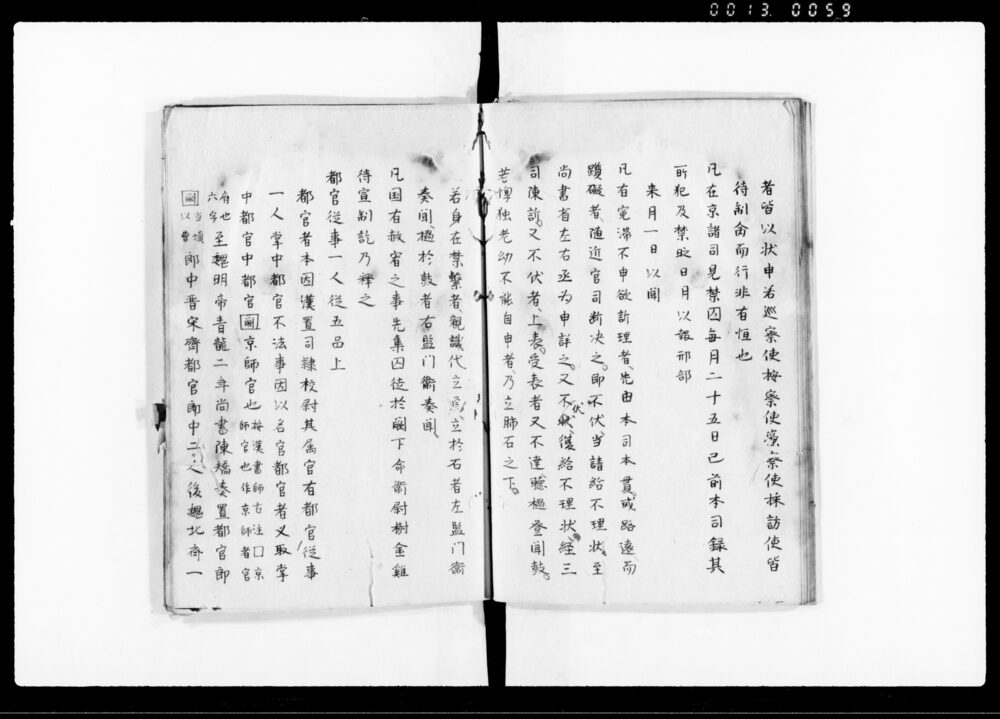 0013 0059
者皆以状申若巡察使按察使廉察使採訪使皆
待制命而行非有恒也
凡在京諸司見禁囚每月二十五日已前本司録其
所犯及禁時日月以報刑部
来月一日以聞
凡有冤滞不申欲訴理者、先由本司本貫、或路遠而
躓礙者、随近官司断决之。即不伏、当請給不理状、至
尚書省左右丞為申詳之。又不伏、復給不理状、経三
司陳訴。又不伏者、上表。受表者又不達、聴撾登聞鼓。
若惸独老幼不能自申者、乃立肺石之下。
若身在禁繋者、親識代立焉、立於石者左監门衛
奏聞、撾於鼓者右監门衛奏聞、
凡国有赦宥之事先集囚徒於闕下命衛尉樹金雞
待宣制訖乃釋之
都官従事一人従五品上
都官者本因漢置司隷校尉其属官有都官従事
一人掌中都官不法事因以名官都官者又取掌
中都官中都官闕京師官也按漢書師古注囗京師官也作京師者官
府也六字当填闕以曹至魏明帝青龍二年尚書陳橋奏置都官郎
郎中晋宋齊都官郎中二人後魏北斉一